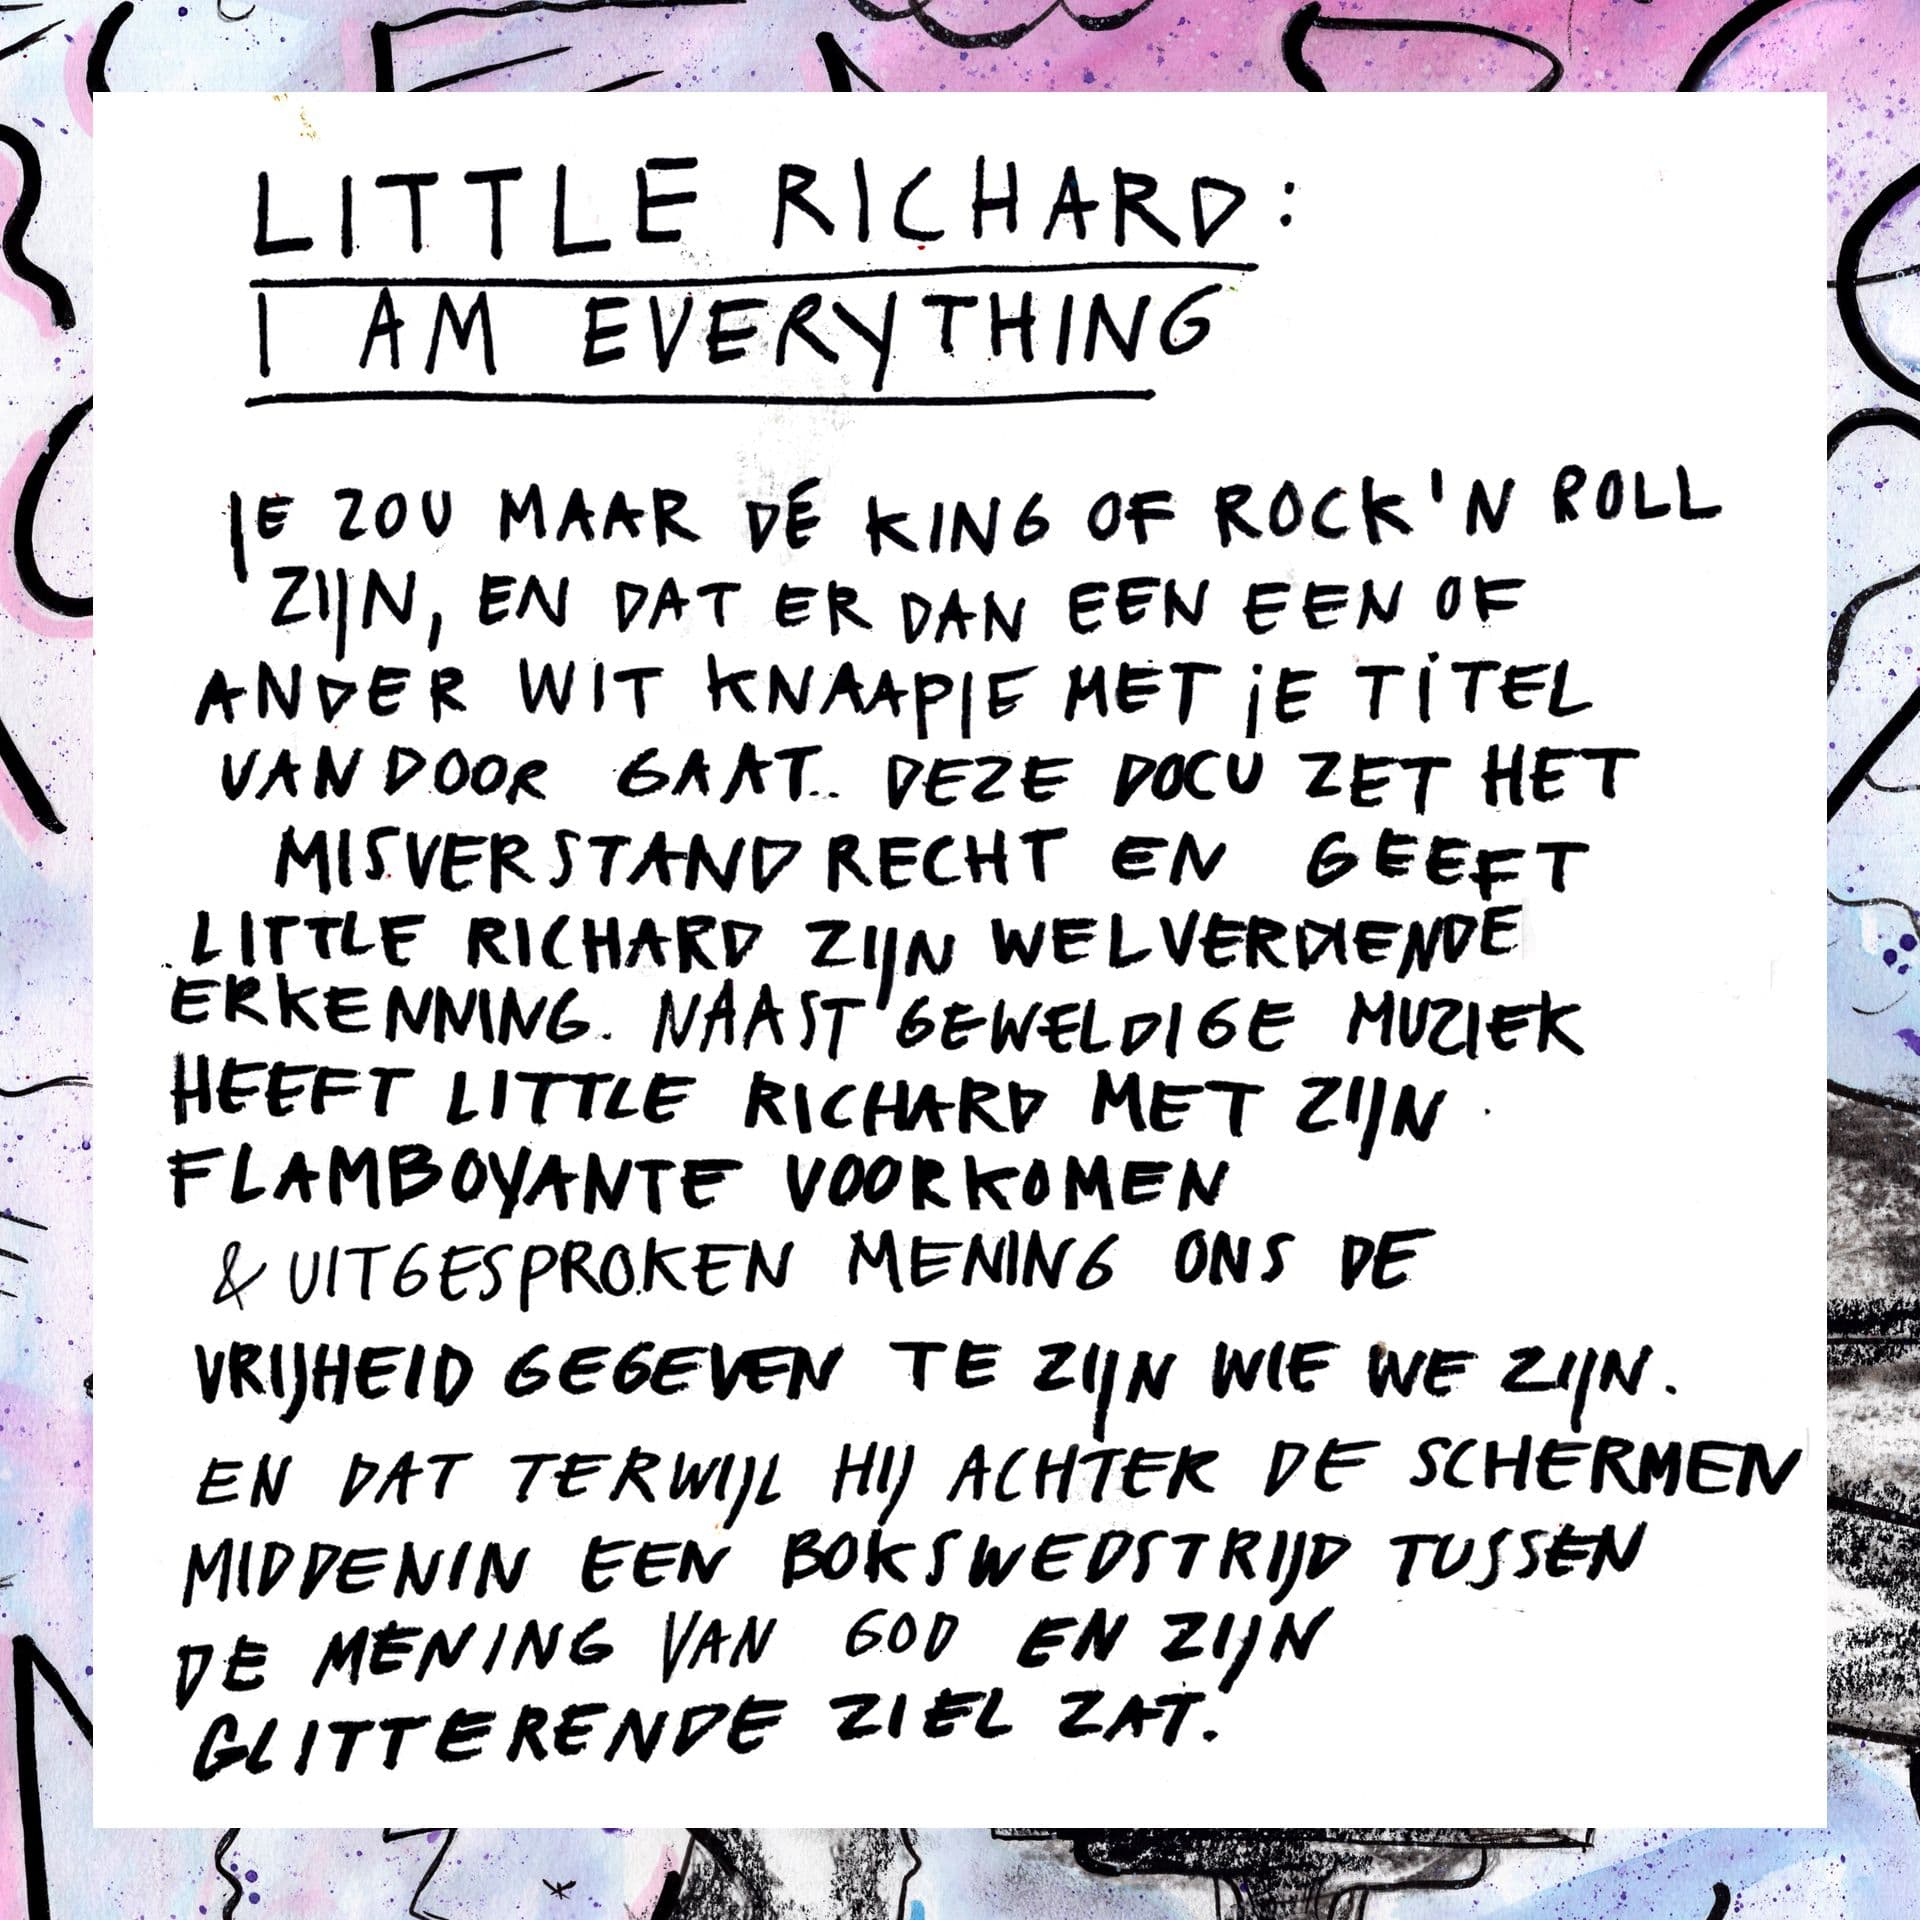 LITTLE RICHARD:
I AM EVERYTHING
JE ZOU MAAR DE KING OF ROCK'N ROLL
ZIJN, EN DAT ER DAN EEN EEN OF
ANDER WIT KNAAPJE MET JE TITEL
VANDOOR GAAT.. DEZE DOCU ZET HET
MISVERSTAND RECHT EN GEEFT
LITTLE RICHARD ZIJN WELVERDIENDE
ERKENNING. NAAST GEWELDIGE MUZIEK
HEEFT LITTLE RICHARD MET ZIJN
FLAMBOYANTE VOORKOMEN
& UITGESPROKEN MENING ONS DE
VRIJHEID GEGEVEN TE ZIJN WIE WE ZIJN.
EN DAT TERWIJL HIJ ACHTER DE SCHERMEN
MIDDENIN EEN BOKSWEDSTRIJD TUSSEN
DE MENING VAN GOD EN ZIJN
GLITTERENDE ZIEL ZAT.